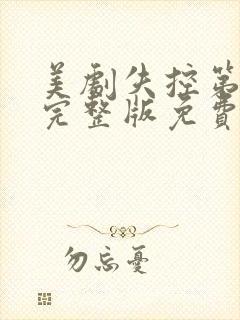 美劇失控第
完整版免費
勿忘憂